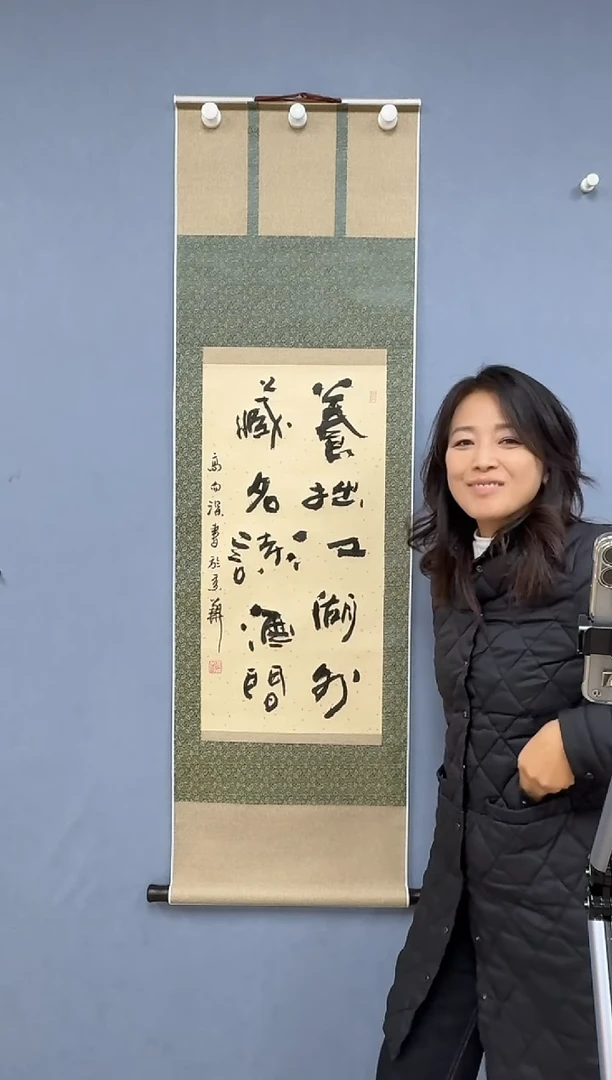 養拙江湖外
藏名詩酒間
書於京華